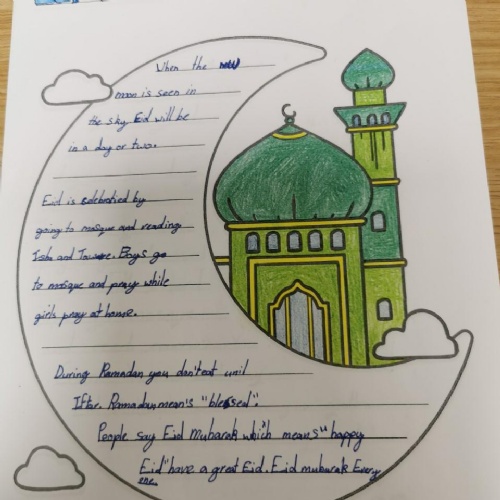 When the new
moon is seen in
the sky Eid will be
in a day or two.
Eid is celebrated by
going to mosque and reading
Isha and . Boys go
to mosque and pray while
girls pray at home.
During Ramadan you don't eat until
Iftar. Ramadan mean's "blessed".
People say Eid Mubarak which means "happy
Eid" have a great Eid. Eid mubarak Every
one.